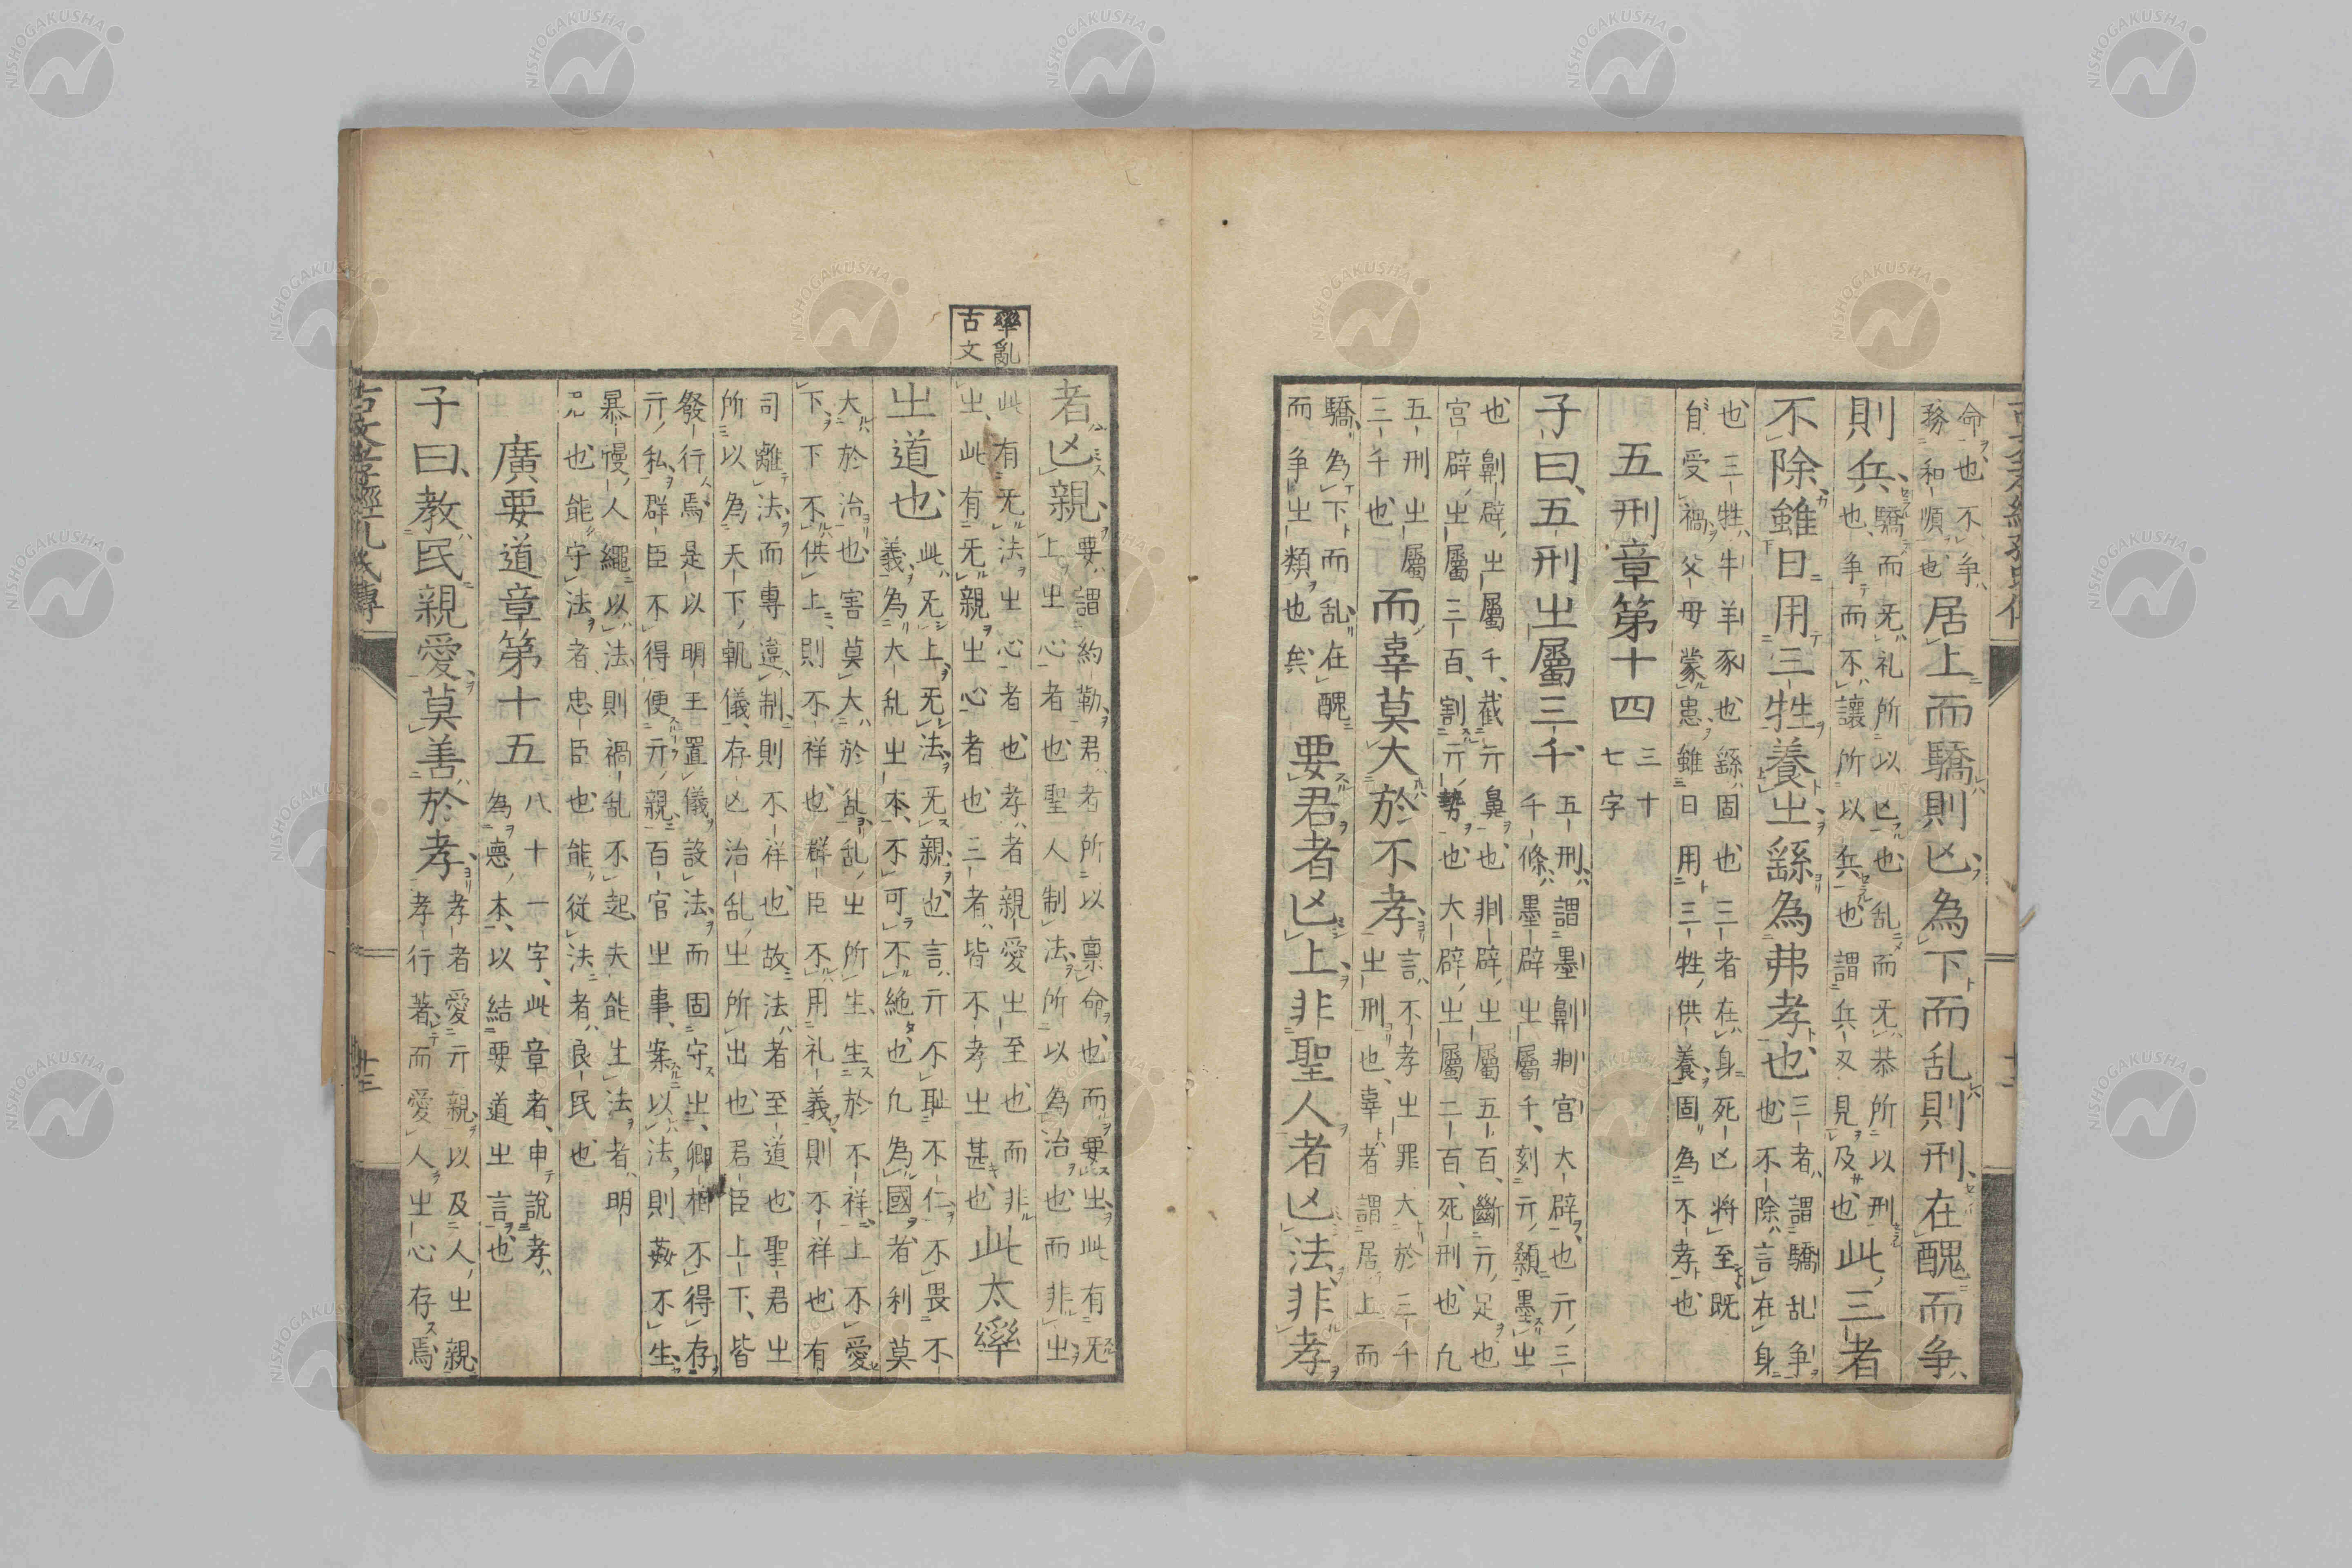 命也不争
務和順也
居上而驕則亾為下而乱則刑在醜而争
則兵
驕而无礼所以亾也乱而无恭所以刑
也争而不讓所以兵也謂兵刄見及也
此三者
不除雖日用三牲養㞢繇為弗孝也
三者謂驕乱争
也不除言在身
也三牲牛羊豕也繇固也三者在身死亾将至既
自受禍父母蒙患雖日用三牲供養固為不孝也
五刑章第十四
三十
七字
子曰五刑㞢屬三千
五刑謂墨劓剕宮大辟也亓三
千條墨辟㞢屬千刻亓顙墨㞢
也劓辟㞢屬千截亓鼻也剕辟㞢屬五百斷亓足也
宮辟㞢屬三百割亓勢也大辟㞢屬二百死刑也凢
五刑㞢屬
三千也
而辠莫大於不孝
言不孝㞢罪大於三千
㞢刑也辠者謂居上而
驕為下而乱在醜
而争㞢類也矣
要君者亾上非聖人者亾法非孝
𤔔亂
古文
者亾親
要謂約勒君者所以稟命也而要㞢此有无
上㞢心者也聖人制法所以為治也而非㞢
此有无法㞢心者也孝者親愛㞢至也而非
㞢此有无親㞢心者也三者皆不孝㞢甚也
此太𤔔
㞢道也
此无上无法无親也言亓不耻不仁不畏不
義為大乱㞢本不可不絶也凢為國者利莫
大於治害莫大於乱乱㞢所生生於不祥上不愛
下下不供上則不祥也群臣不用礼義則不祥也有
司離法而專違制則不祥也故法者至道也聖君㞢
所以為天下軌儀存亾治乱㞢所出也君臣上下皆
發行焉是以明王置儀設法而固守㞢卿相不得存
亓私群臣不得便亓親百官㞢事案以法則姦不生
暴慢人繩以法則禍乱不起夫能生法者明
也能守法者忠臣也能從法者良民也
廣要道章第十五
八十一字此章者申說孝
為悳本以結要道㞢言也
子曰教民親愛莫善於孝
孝者愛亓親以及人㞢親
孝行著而愛人㞢心存焉
古文孝經孔氏傳
NISHOGAKUSHA